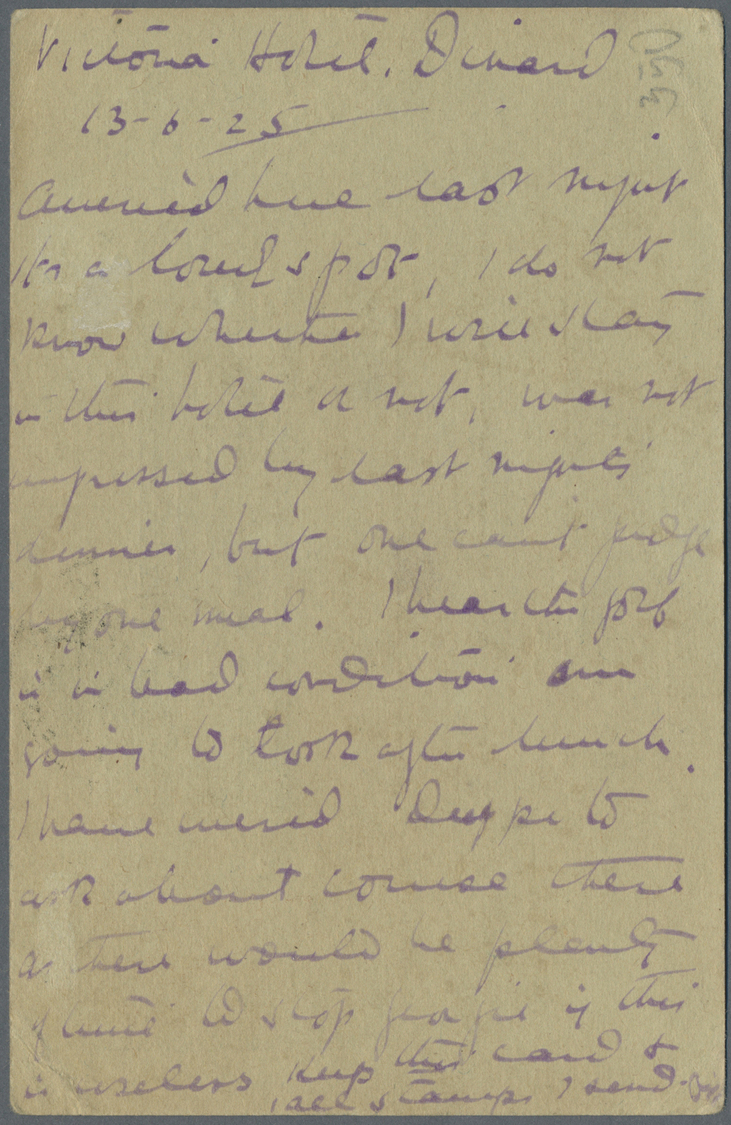 Victoria Hotel. Dinard
350
13-6-25
Arrived here last night
its a lovely spot, I do not
know whether I will stay
in this hotel or not, was not
impressed by last nights
dinner, but one can't judge
by one meal. I hear the golf
is in bad condition am
going to look after lunch.
I have wired Dieppe to
ask about course there
as there would be plenty
of time to stop people if this
is useless keep this card &
all stamps I send